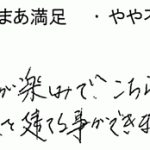 まあ満足 ・やや
が楽しみで、こちら
と建てる事ができま